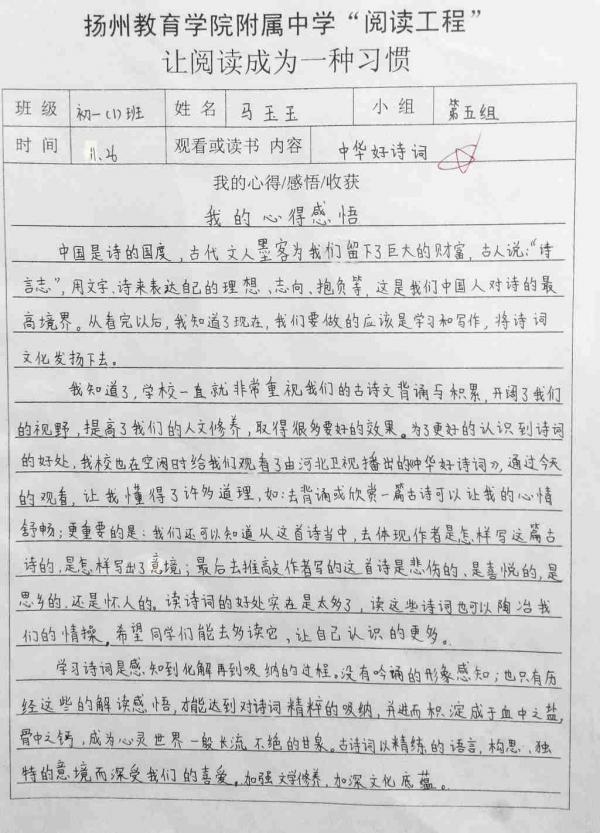 扬州教育学院附属中学“阅读工程”
让阅读成为一种习惯
班 级 初一(1)班 姓 名 马玉玉 小 组 第五组
时 间 11.26 观看或读书 内容 中华好诗词
我的心得/感悟/收获
我的心得感悟
中国是诗的国度，古代文人墨客为我们留下了巨大的财富，古人说：“诗
言志”，用文字、诗来表达自己的理想、志向、抱负等，这是我们中国人对诗的最
高境界。从看完以后，我知道了现在，我们要做的应该是学习和写作，将诗词
文化发扬下去。
我知道了，学校一直就非常重视我们的古诗文背诵与积累，开阔了我们
的视野，提高了我们的人文修养，取得很多要好的效果。为了更好的认识到诗词
的好处，我校也在空闲时给我们观看了由河北卫视播出的《中华好诗词》，通过今天
的观看，让我懂得了许多道理，如：去背诵或欣赏一篇古诗可以让我的心情
舒畅；更重要的是：我们还可以知道从这首诗当中，去体现作者是怎样写这篇古
诗的，是怎样写出了意境；最后去推敲作者写的这首诗是悲伤的，是喜悦的，是
思乡的，还是怀人的。读诗词的好处实在是太多了，读这些诗词也可以陶冶我
们的情操。希望同学们能去多读它，让自己认识的更多。
学习诗词是感知到化解再到吸纳的过程。没有吟诵的形象感知；也只有历
经这些的解读感悟，才能达到对诗词精粹的吸纳，并进而积淀成于血中之盐，
骨中之钙，成为心灵世界一般长流不绝的甘泉。古诗词以精练的语言，构思、独
特的意境而深受我们的喜爱。加强文学修养，加深文化底蕴。